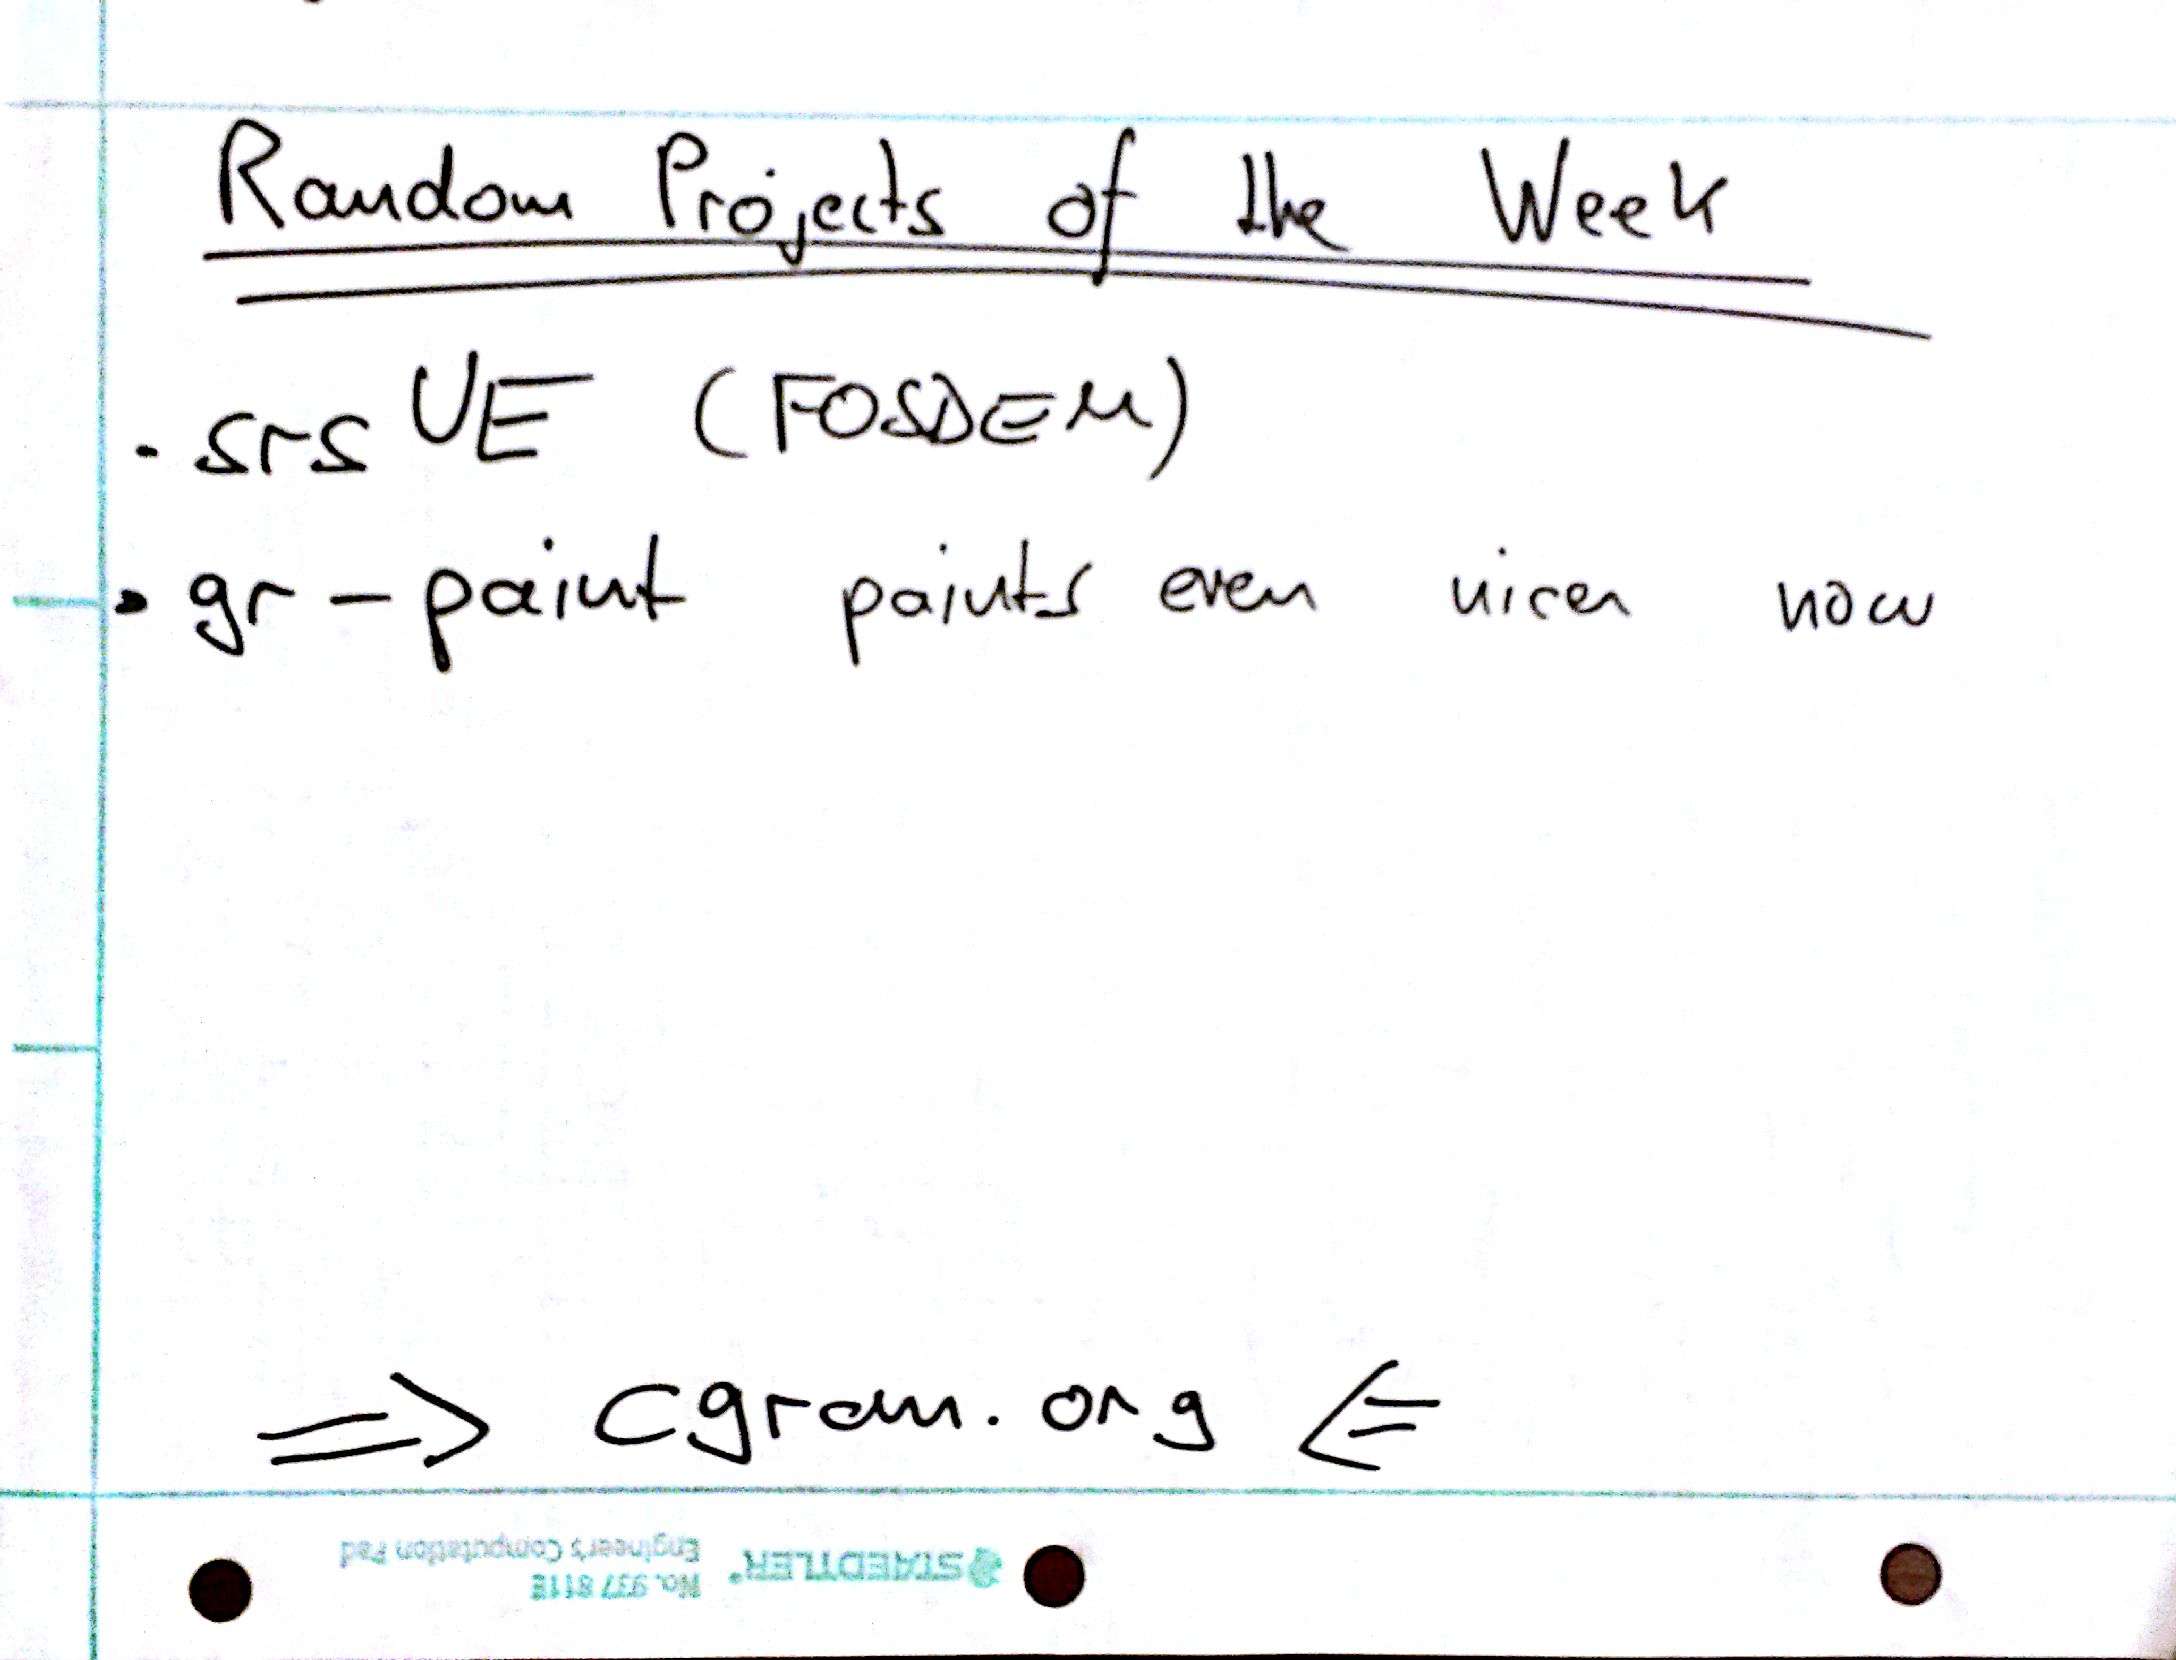 Random Projects of the Week
• srsUE (FOSDEM)
• gr-paint paints even nicer now
⇒ cgran.org ⇐
STAEDTLER®
No. 937 811E
Engineer's Computation Pad